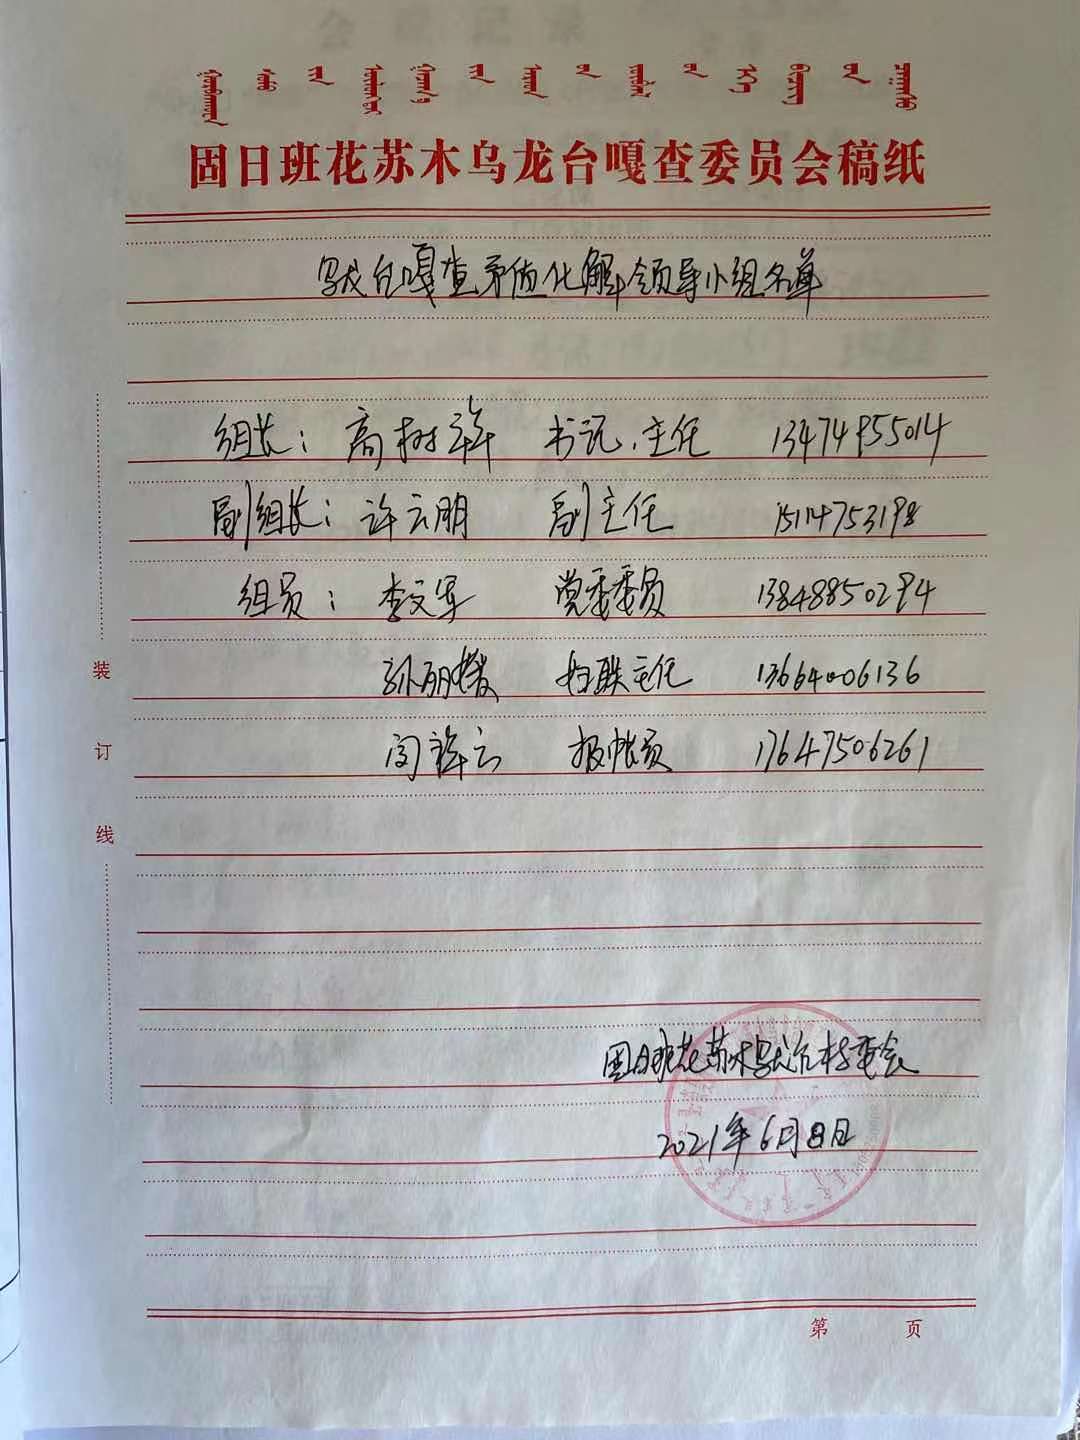 固日班花苏木乌龙台嘎查委员会稿纸
乌龙台嘎查矛盾化解领导小组名单
组长：高树祥 书记、主任 13474955014
副组长：许云朋 副主任 15114753198
组员：李文军 党委委员 13848850294
孙丽 妇联主任 13664006136
闫祥云 报账员 17647506261
装
订
线
固日班花苏木乌龙台村委会
2021年6月8日
第 页